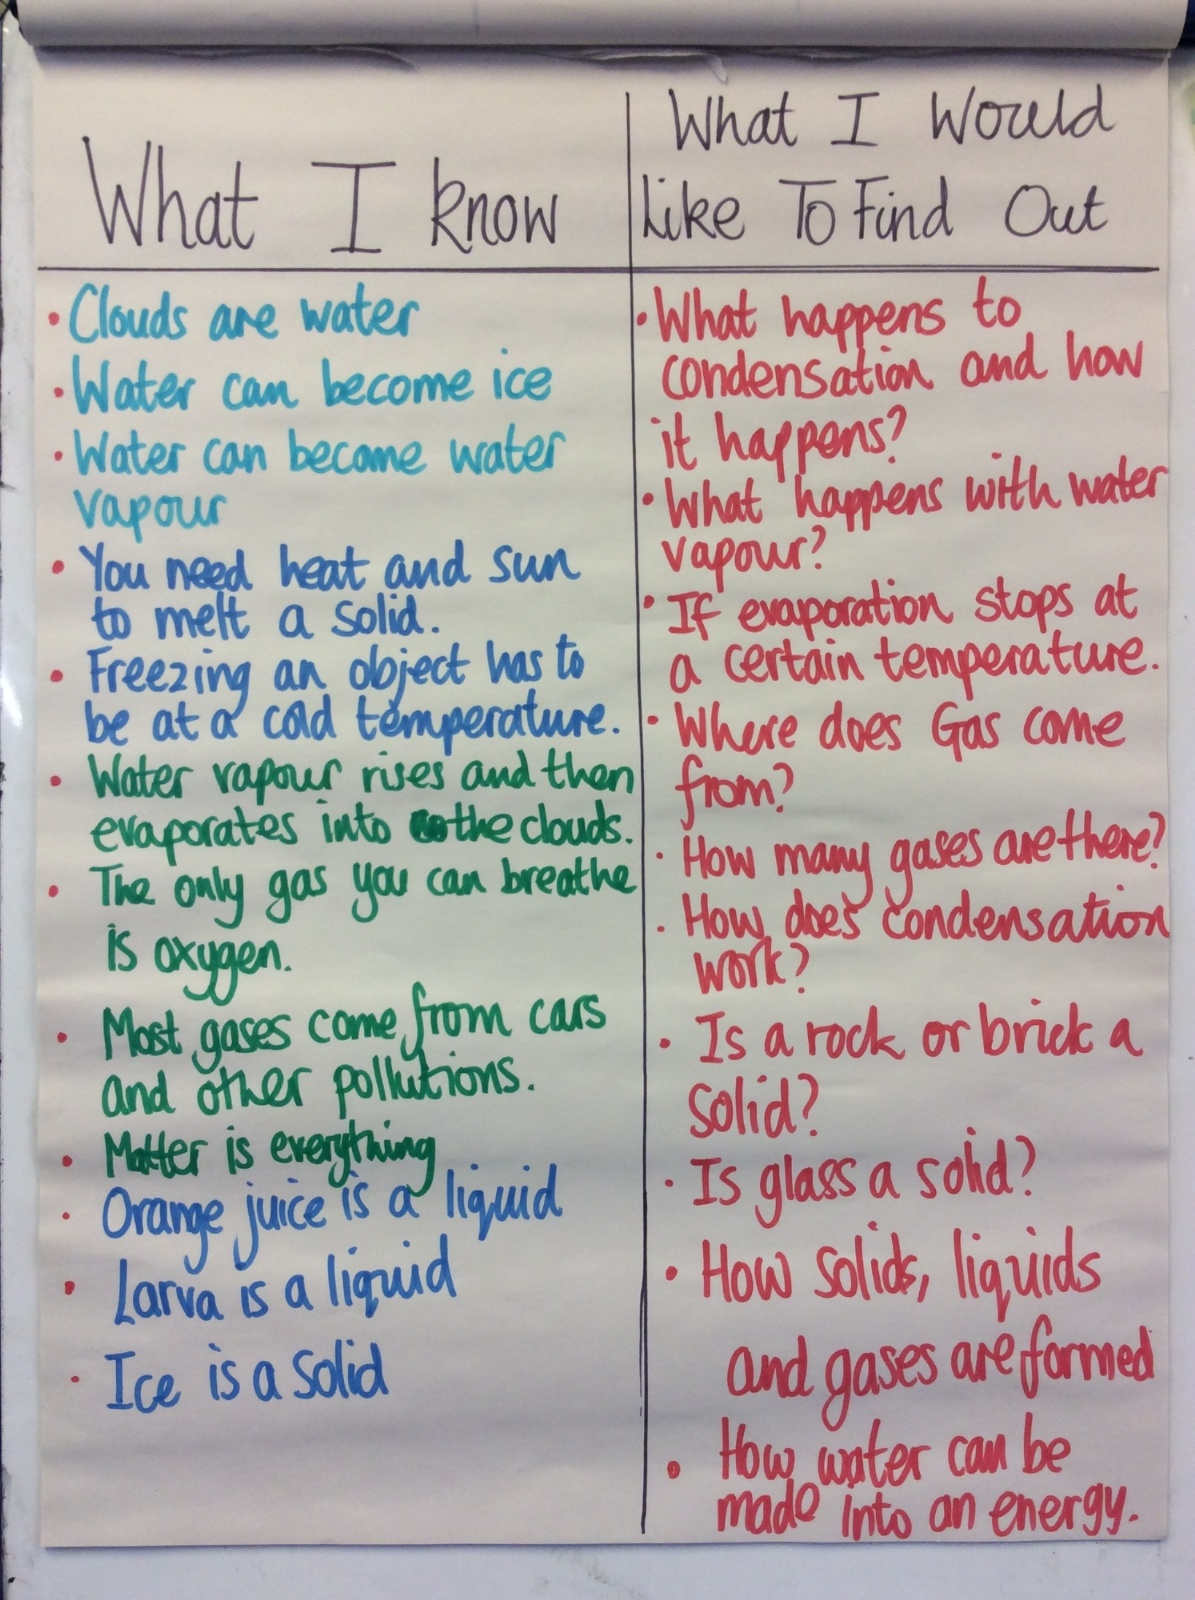 What I know
• Clouds are water
• Water can become ice
• Water can become water
vapour
• You need heat and sun
to melt a solid.
• Freezing an object has to
be at a cold temperature.
• Water vapour rises and then
evaporates into the clouds.
• The only gas you can breathe
is oxygen.
• Most gases come from cars
and other pollutions.
• Matter is everything
• Orange juice is a liquid
• Larva is a liquid
• Ice is a solid
What I Would
Like To Find Out
• What happens to
condensation and how
it happens?
• What happens with water
vapour?
• If evaporation stops at
a certain temperature.
• Where does Gas come
from?
• How many gases are there?
• How does condensation
work?
• Is a rock or brick a
solid?
• Is glass a solid?
• How solids, liquids
and gases are formed
• How water can be
made into an energy.